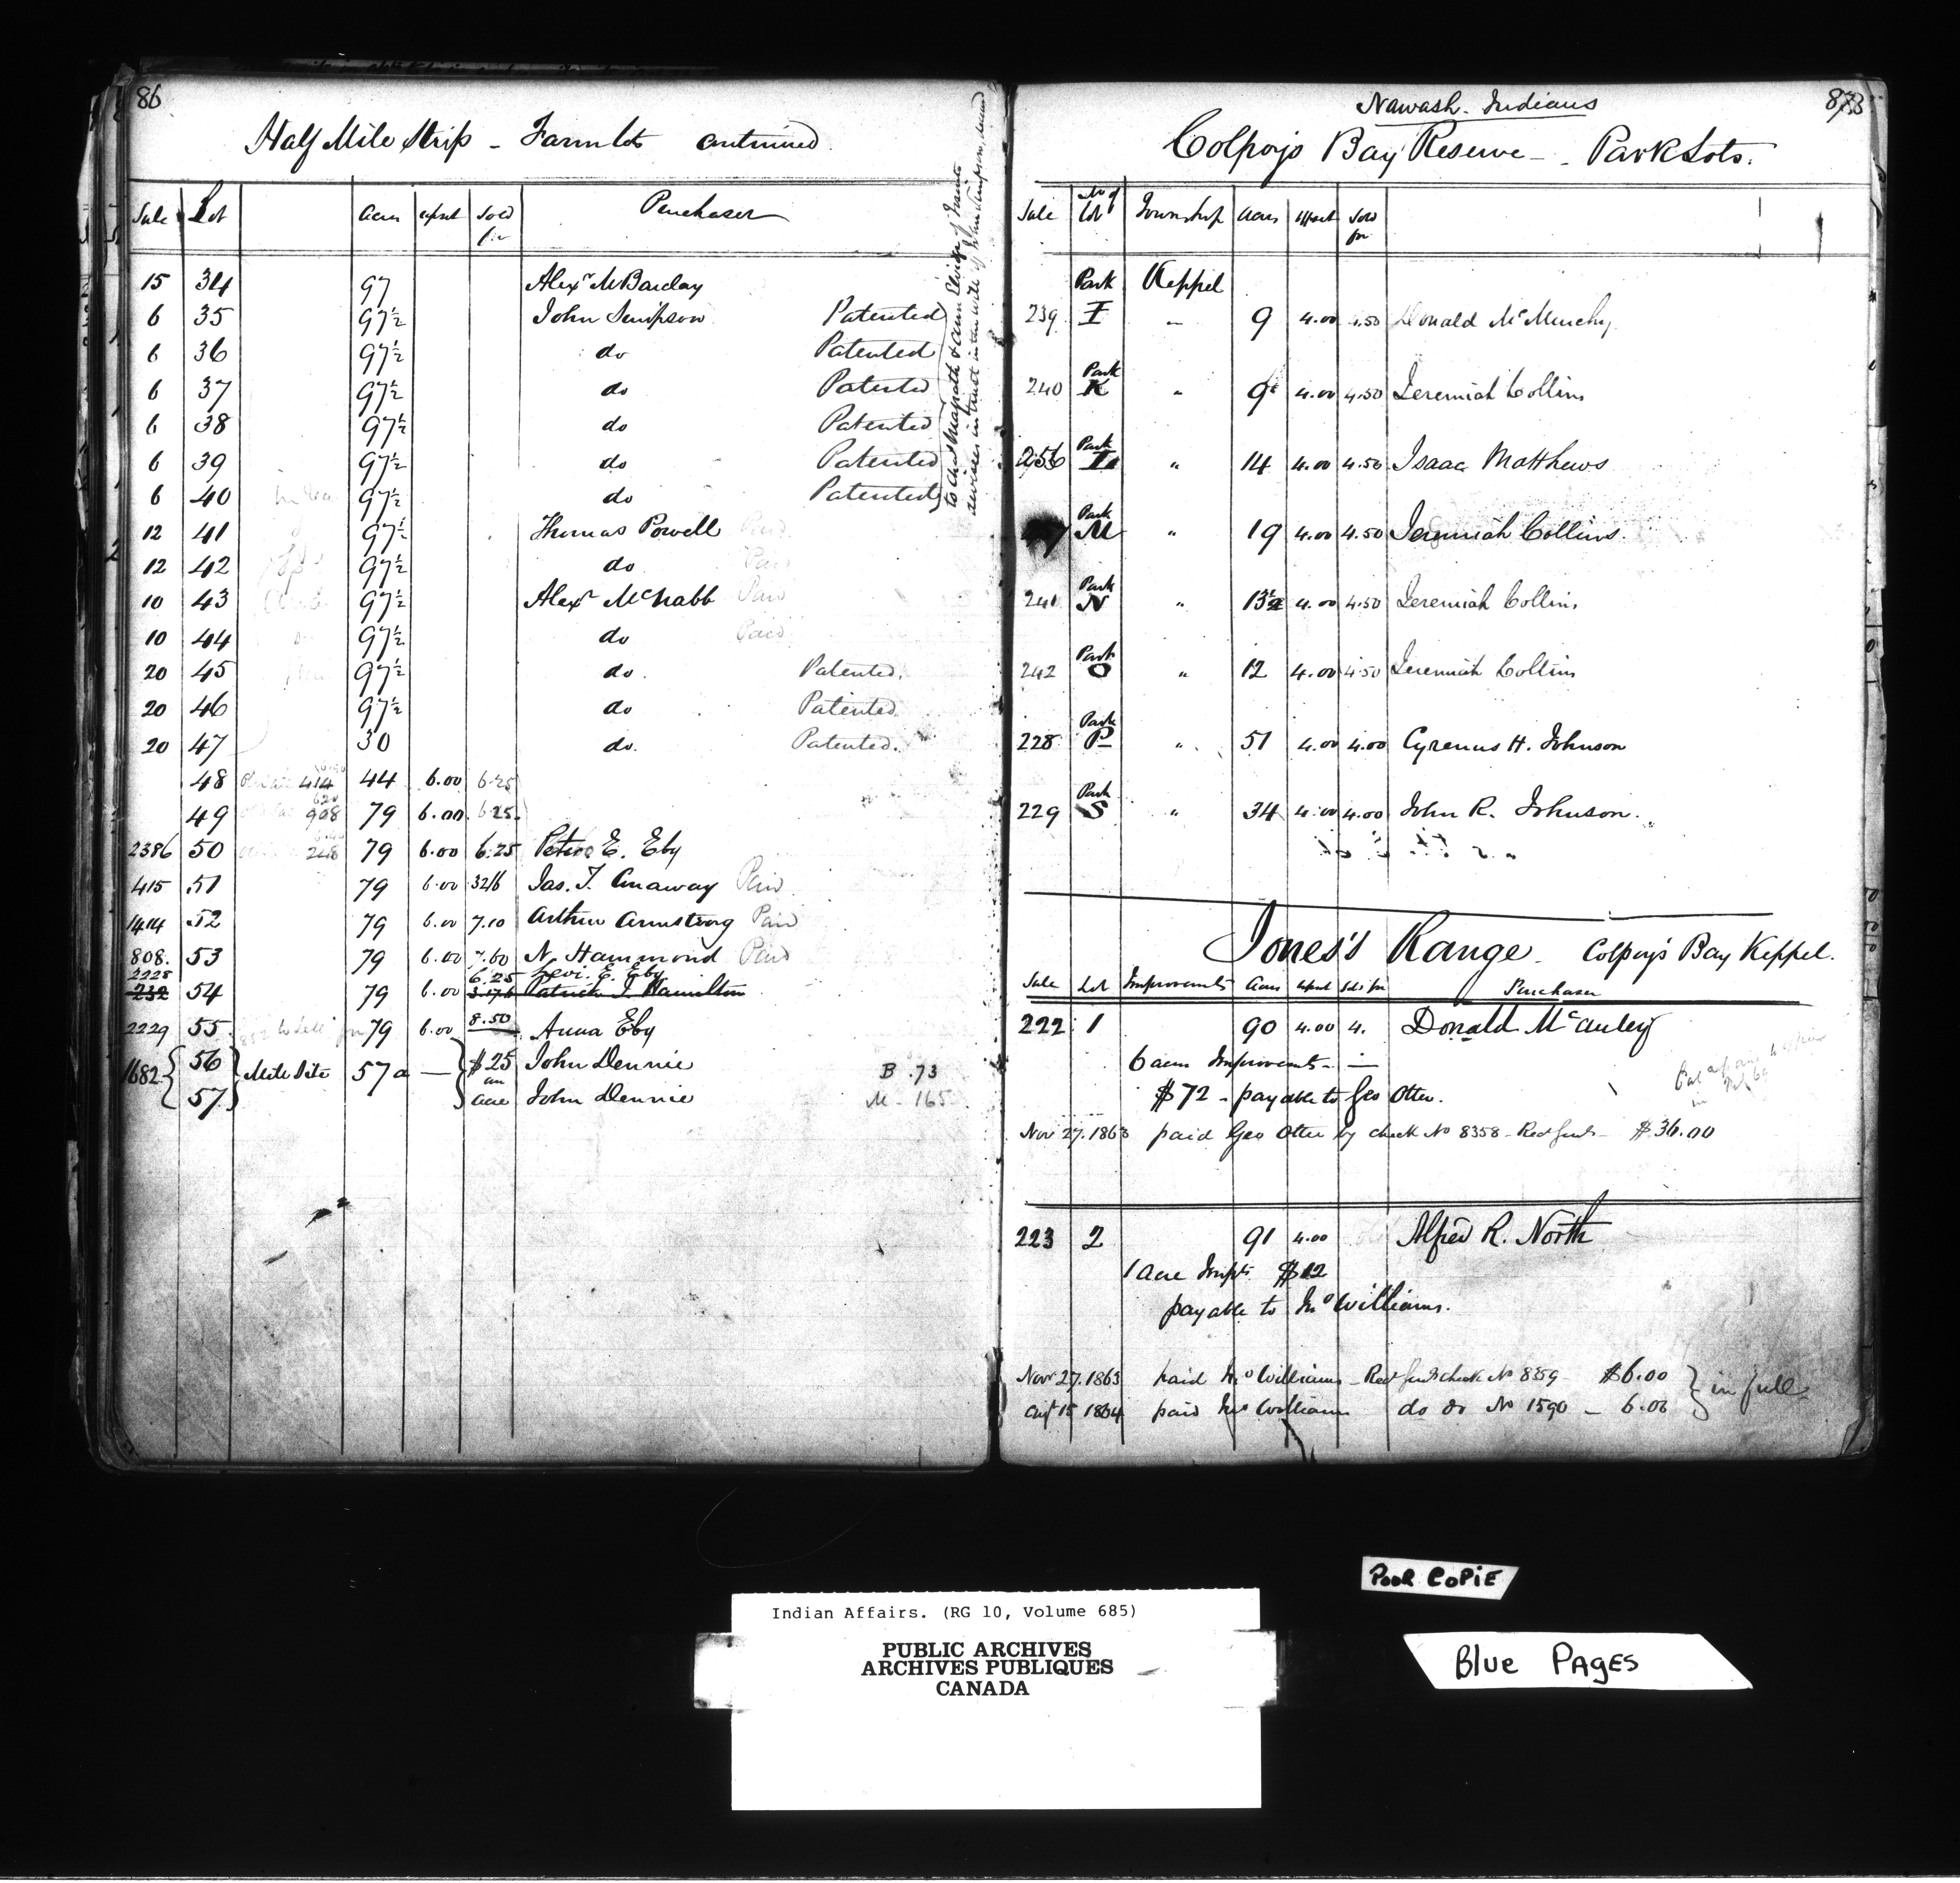 86
Half Mile Strip - Farm lots continued.
Sale Lot Acres upset Sold for Purchaser
15 34 97 Alexr McBarclay
6 35 97½ John Simpson Patented
6 36 97½ do Patented
6 37 97½ do Patented
6 38 97½ do Patented
6 39 97½ do Patented
6 40 97½ do Patented
12 41 97½ Thomas Powell Paid
12 42 97½ do Paid
10 43 97½ Alexr McNabb Paid
10 44 97½ do Paid
20 45 97½ do Patented.
20 46 97½ do Patented
20 47 30 do. Patented.
48 414 44 6.00 6.25
49 908 79 6.00 6.25
2386 50 79 6.00 6.25 Peter E. Eby
415 51 79 6.00 3216 Jas. T. Conaway Paid
1414 52 79 6.00 7.10 Arthur Armstrong Paid
808. 53 79 6.00 7.60 N. Hammond Paid
2228 6.25 Levi. E. Eby
232 54 79 6.00 3.17.6 Patrick J. Hamilton
2229 55. 79 6.00 8.50 Anna Eby
1682 56 Mill Site 57a — $25 John Dennie B. 73
57 an acre John Dennie M - 165
Nawash. Indians 87
Colpoys Bay Reserve - Park Lots.
Sale No of Lot Township Acres upset Sold for
Park Keppel
239 I " 9 4.00 4.50 Donald McMurchy
240 Park K " 9 4.00 4.50 Jeremiah Collins
256 Park L " 14 4.00 4.50 Isaac Matthews
Park M " 19 4.00 4.50 Jeremiah Collins.
241 Park N " 13½ 4.00 4.50 Jeremiah Collins
242 Park O " 12 4.00 4.50 Jeremiah Collins
228 Park P " 51 4.00 4.00 Cyrenus H. Johnson
229 Park S " 34 4.00 4.00 John R. Johnson.
Jones's Range - Colpoy's Bay Keppel.
Sale Lot Improvements Acres upset Sold for Purchaser
222 1 90 4.00 4. Donald McAuley
6 acres Improvents - —
$72 - payable to Geo Otter.
Nov 27. 1863 paid Geo Otter by check No 8358 - $36.00
223 2 91 4.00 Alfred R. North
1 Acre Impts $12
payable to Jno Williams.
Nov 27. 1863 paid Jno Williams - check No 8359 $6.00 } in full
Augt 15 1864 paid Jno Williams do do No 1590 - 6.00
POOR COPIE
Indian Affairs. (RG 10, Volume 685)
PUBLIC ARCHIVES
ARCHIVES PUBLIQUES
CANADA
Blue PAGES